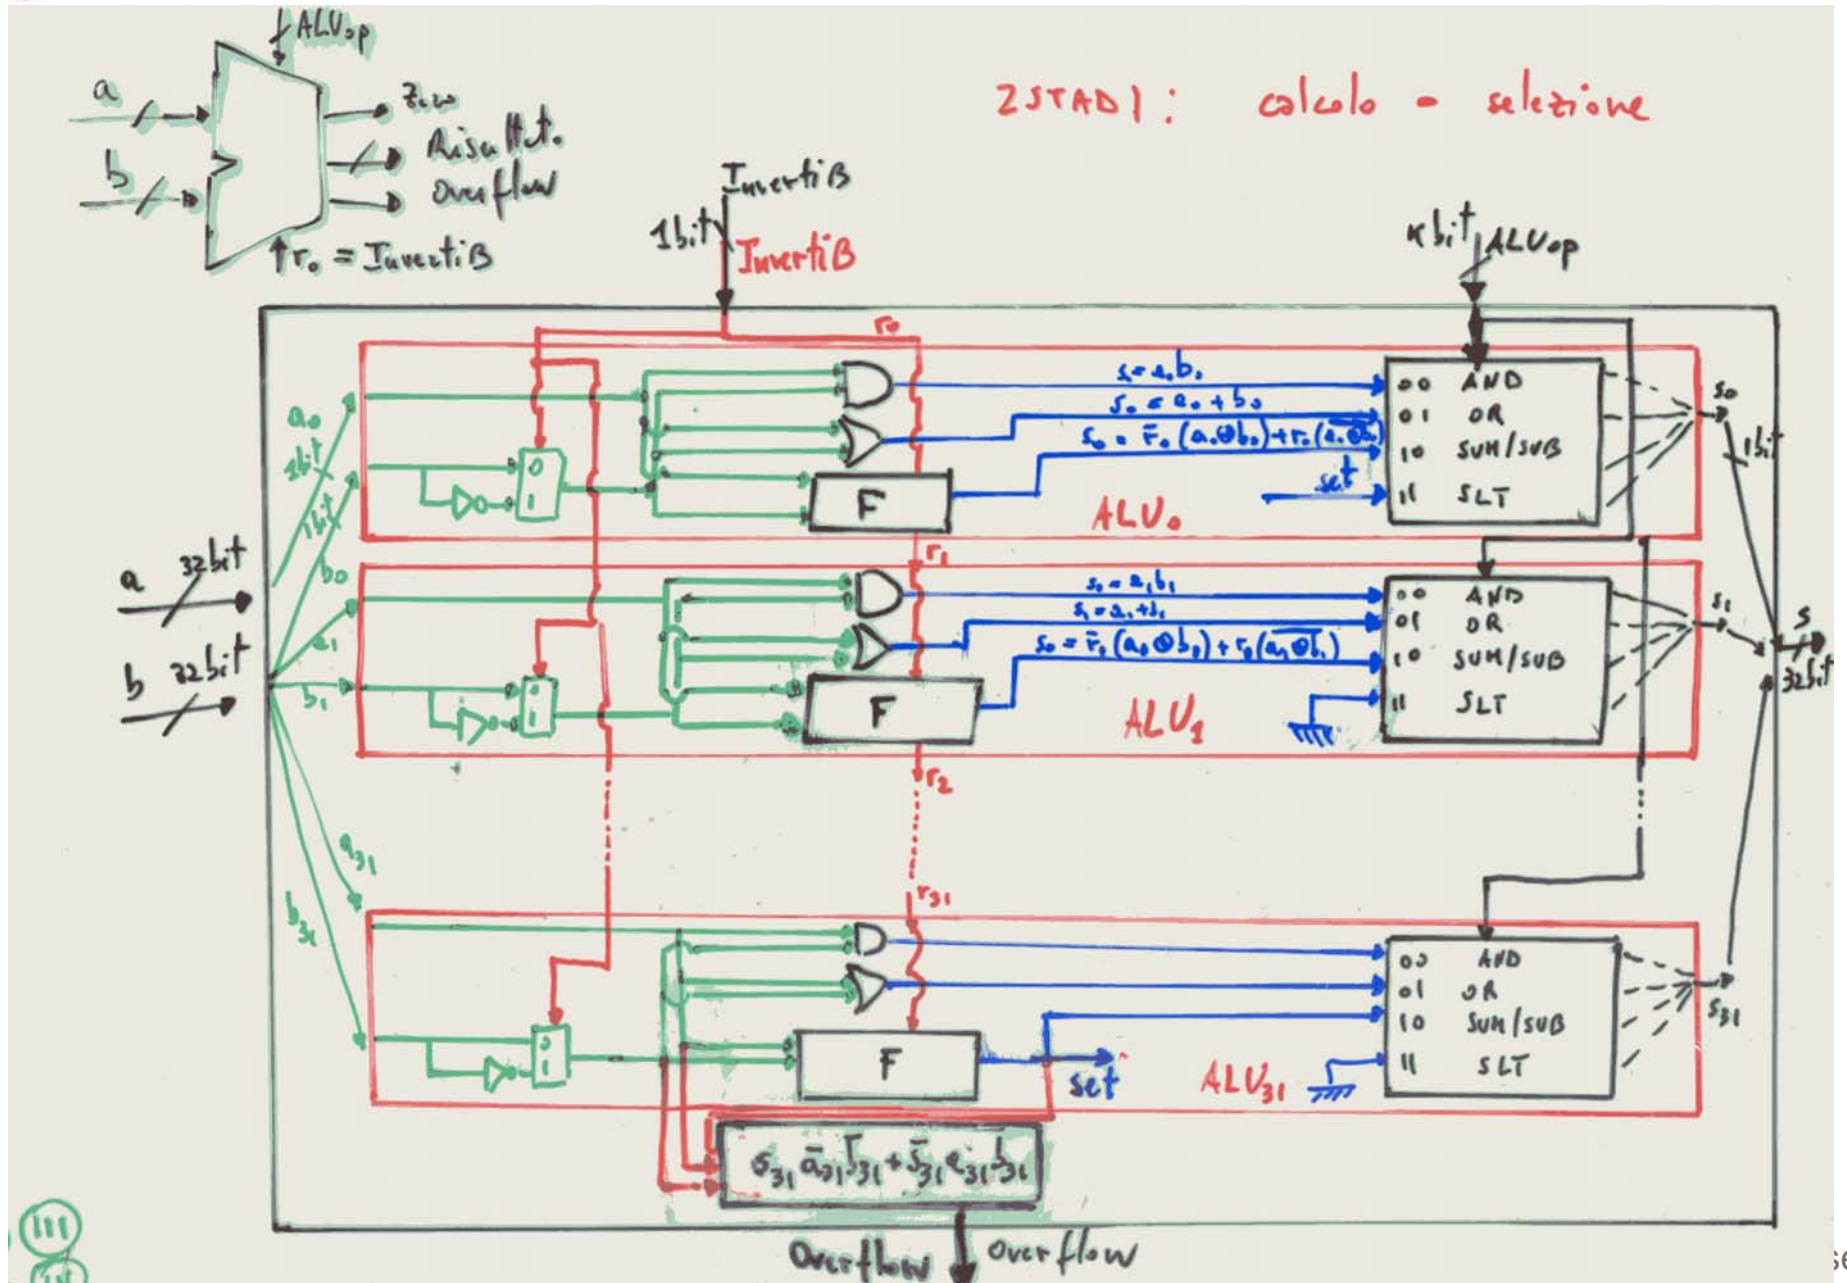 ALUop
a
b
zero
Risultato
Overflow
r₀ = InvertiB
2 STADI: calcolo - selezione
InvertiB
1bit
InvertiB
kbit
ALUop
r₀
a₀
1bit
1bit
b₀
0
1
F
s₀ = a₀b₀
s₀ = a₀ + b₀
s₀ = r̅₀(a₀⊕b₀) + r₀(a₀⊕b₀)
set
ALU₀
00 AND
01 OR
10 SUM/SUB
11 SLT
s₀
1bit
a 32bit
b 32bit
r₁
a₁
b₁
0
1
F
s₀ = a₁b₁
s₁ = a₁ + b₁
s₀ = r̅₀(a₀⊕b₀) + r₀(a₁⊕b₁)
ALU₁
00 AND
01 OR
10 SUM/SUB
11 SLT
s₁
s
32bit
r₂
a₃₁
b₃₁
r₃₁
0
1
F
set
ALU₃₁
00 AND
01 OR
10 SUM/SUB
11 SLT
s₃₁
s₃₁ a̅₃₁ b̅₃₁ + s̅₃₁ a₃₁ b₃₁
Overflow
Overflow
III